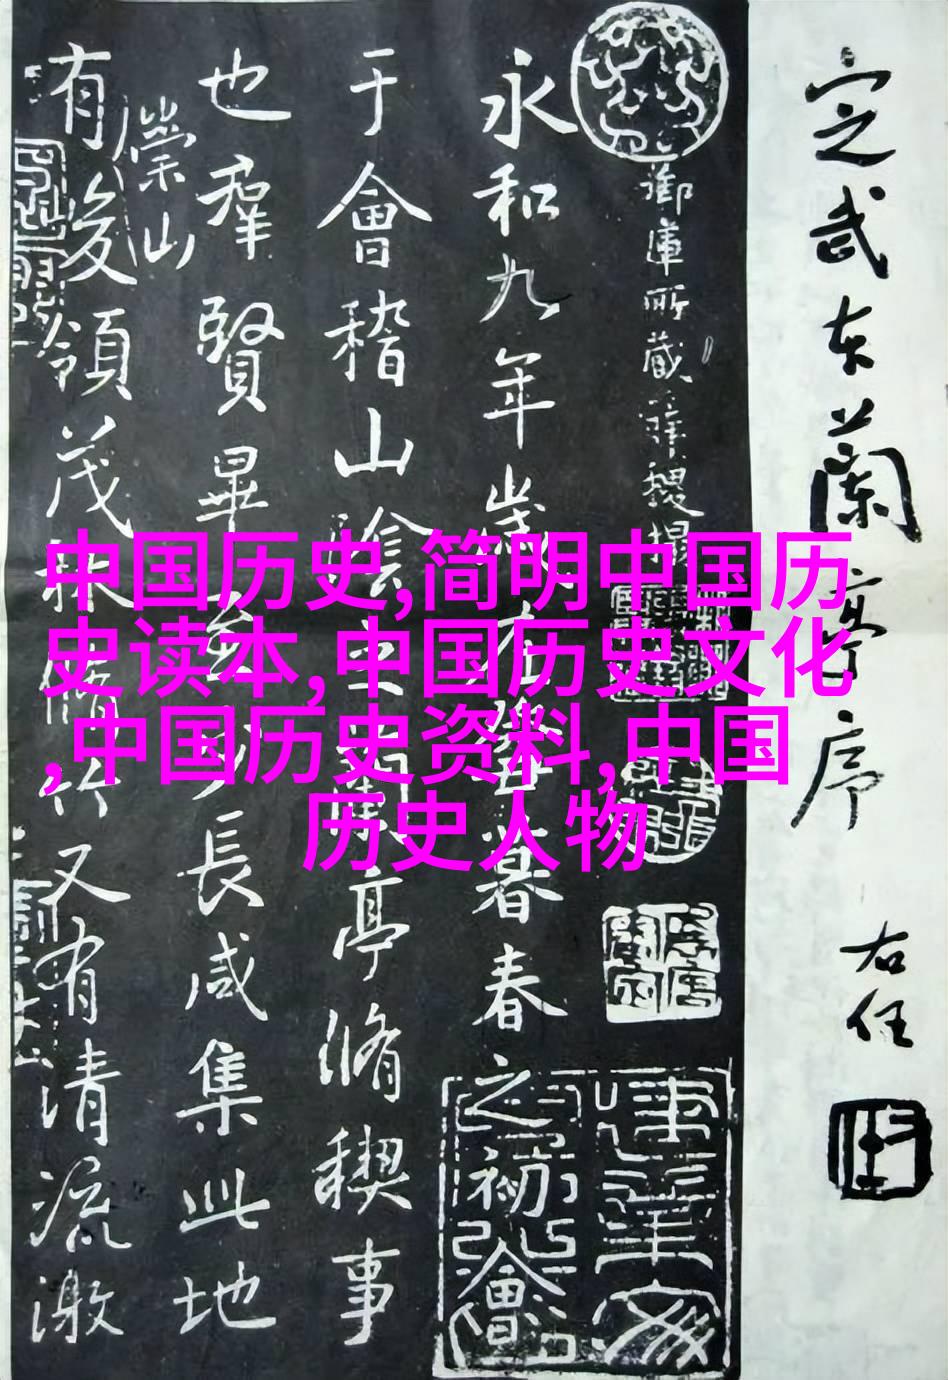 定武本蘭亭序
右任
御庫所藏薛稷搨
永和九年歲在癸丑暮春之初會
于會稽山陰之蘭亭脩稧事
也羣賢畢至少長咸集此地
崇山
有峻領茂林脩竹又有清流激
中国历史,简明中国历
史读本,中国历史文化
,中国历史资料,中国
历史人物